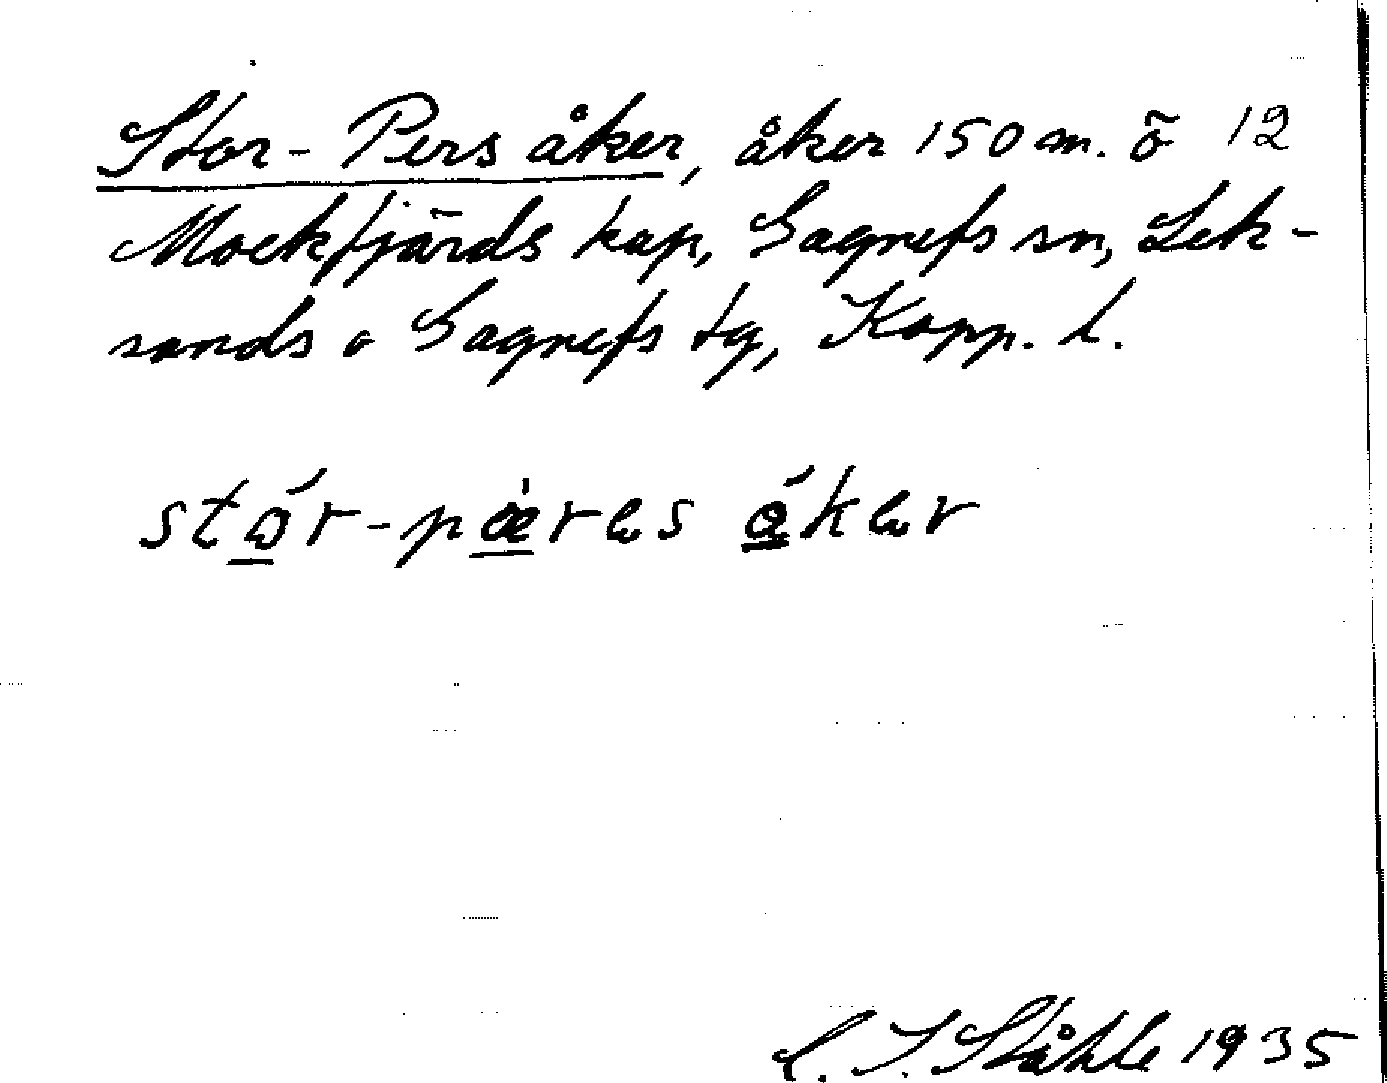 Stor-Pers åker, åker 150 m. ö 12
Mockfjärds kap, Gagnefs sn, Lek-
sands o Gagnefs tg, Kopp. l.
stór-pæ̀res åker
C. I. Ståhle 1935